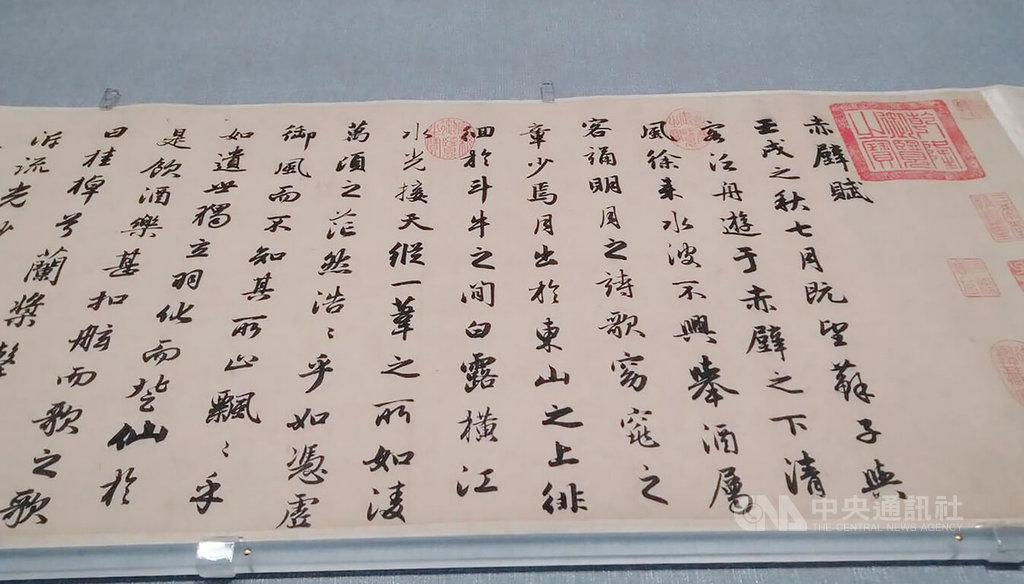 赤壁賦
壬戌之秋七月既望蘇子與
客泛舟遊于赤壁之下清
風徐來水波不興舉酒屬
客誦明月之詩歌窈窕之
章少焉月出於東山之上徘
徊於斗牛之間白露橫江
水光接天縱一葦之所如凌
萬頃之茫然浩〻乎如憑虛
御風而不知其所止飄〻乎
如遺世獨立羽化而登仙於
是飲酒樂甚扣舷而歌之歌
曰桂棹兮蘭槳擊
泝流光
乾隆御覽之寶
中央通訊社
THE CENTRAL NEWS AGENCY